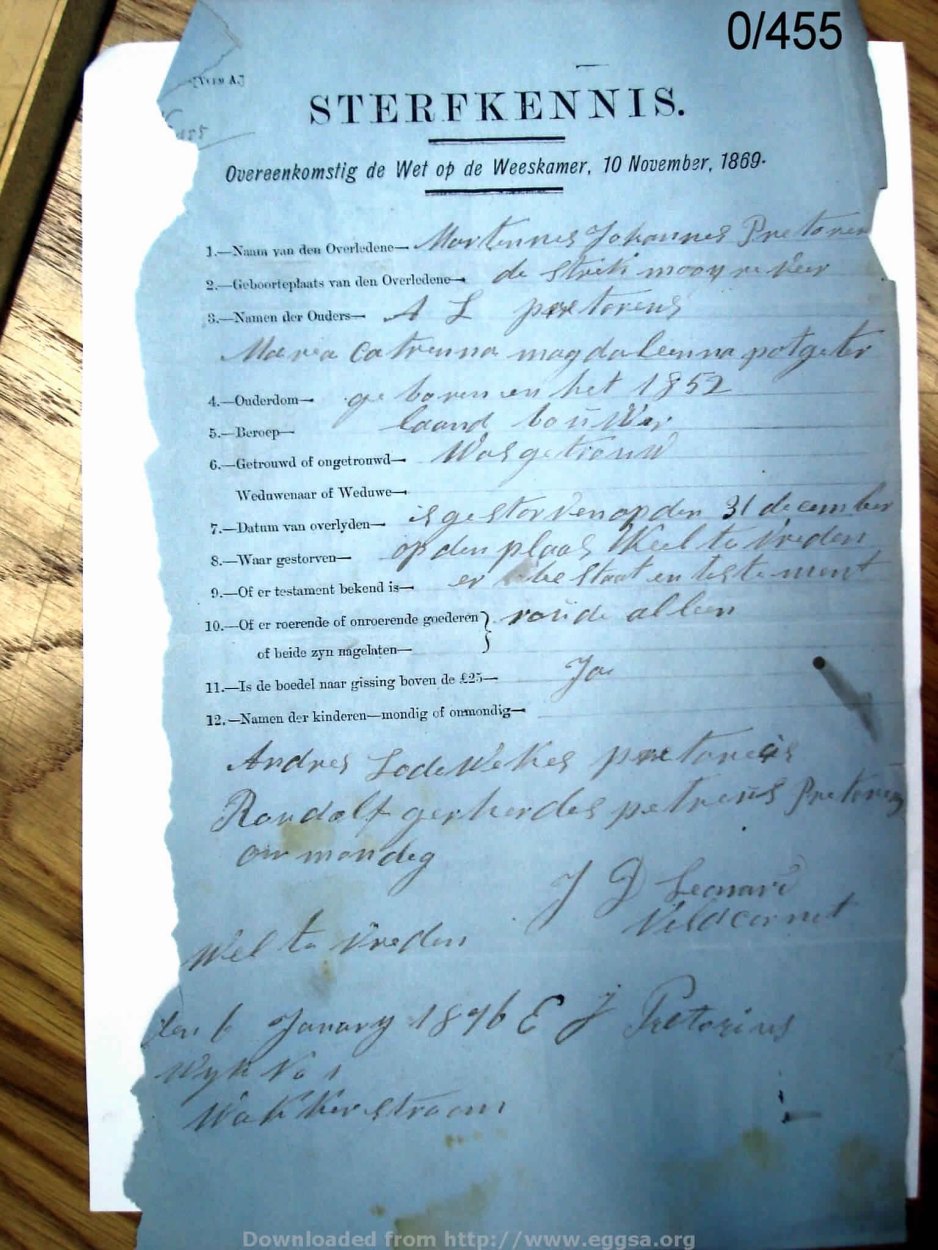 0/455
STERFKENNIS.
Overeenkomstig de Wet op de Weeskamer, 10 November, 1869.
1.—Naam van den Overledene— Martinnes Johannes Pretorius
2.—Geboorteplaats van den Overledene— de Streek mooy re vier
3.—Namen der Ouders— A L pretoreus
Marea Catrinna magdaleenna potgeter
4.—Ouderdom— ge boren en het 1852
5.—Beroep— laand bouwer
6.—Getrouwd of ongetrouwd— Was getrouwd
Weduwenaar of Weduwe—
7.—Datum van overlyden— is gestorven op den 31 december
8.—Waar gestorven— op den plaas Weel te vreden
9.—Of er testament bekend is— er bestaat en testement
10.—Of er roerende of onroerende goederen } alleen
of beide zyn nagelaten—
11.—Is de boedel naar gissing boven de £25— Ja
12.—Namen der kinderen—mondig of onmondig—
Andres Lodewekes pretoreus
Roudolf gerherdes petreus Pretoreus
on mondeg
J D Leonard
Veldcornet
Wel te vreden
den 6 Janary 1896 E J Pretorius
Wyk No 1
Wakkerstroom
Downloaded from http://www.eggsa.org